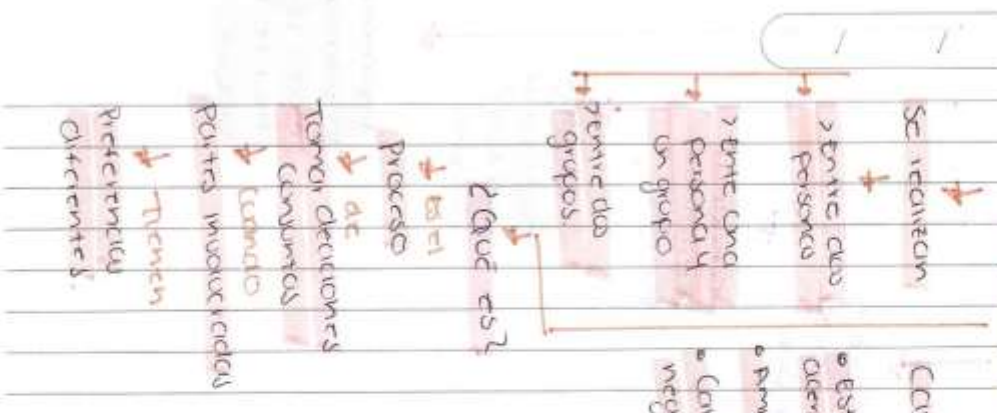 Se realizan
>entre dos
personas
>entre una
persona y
un grupo
>entre dos
grupos.
¿Qué es?
Es el
proceso
de
Tomar deciciones
conjuntas
Cuando
Partes involucradas
Tienen
Preferencias
diferentes.
• Es
• Am
neg